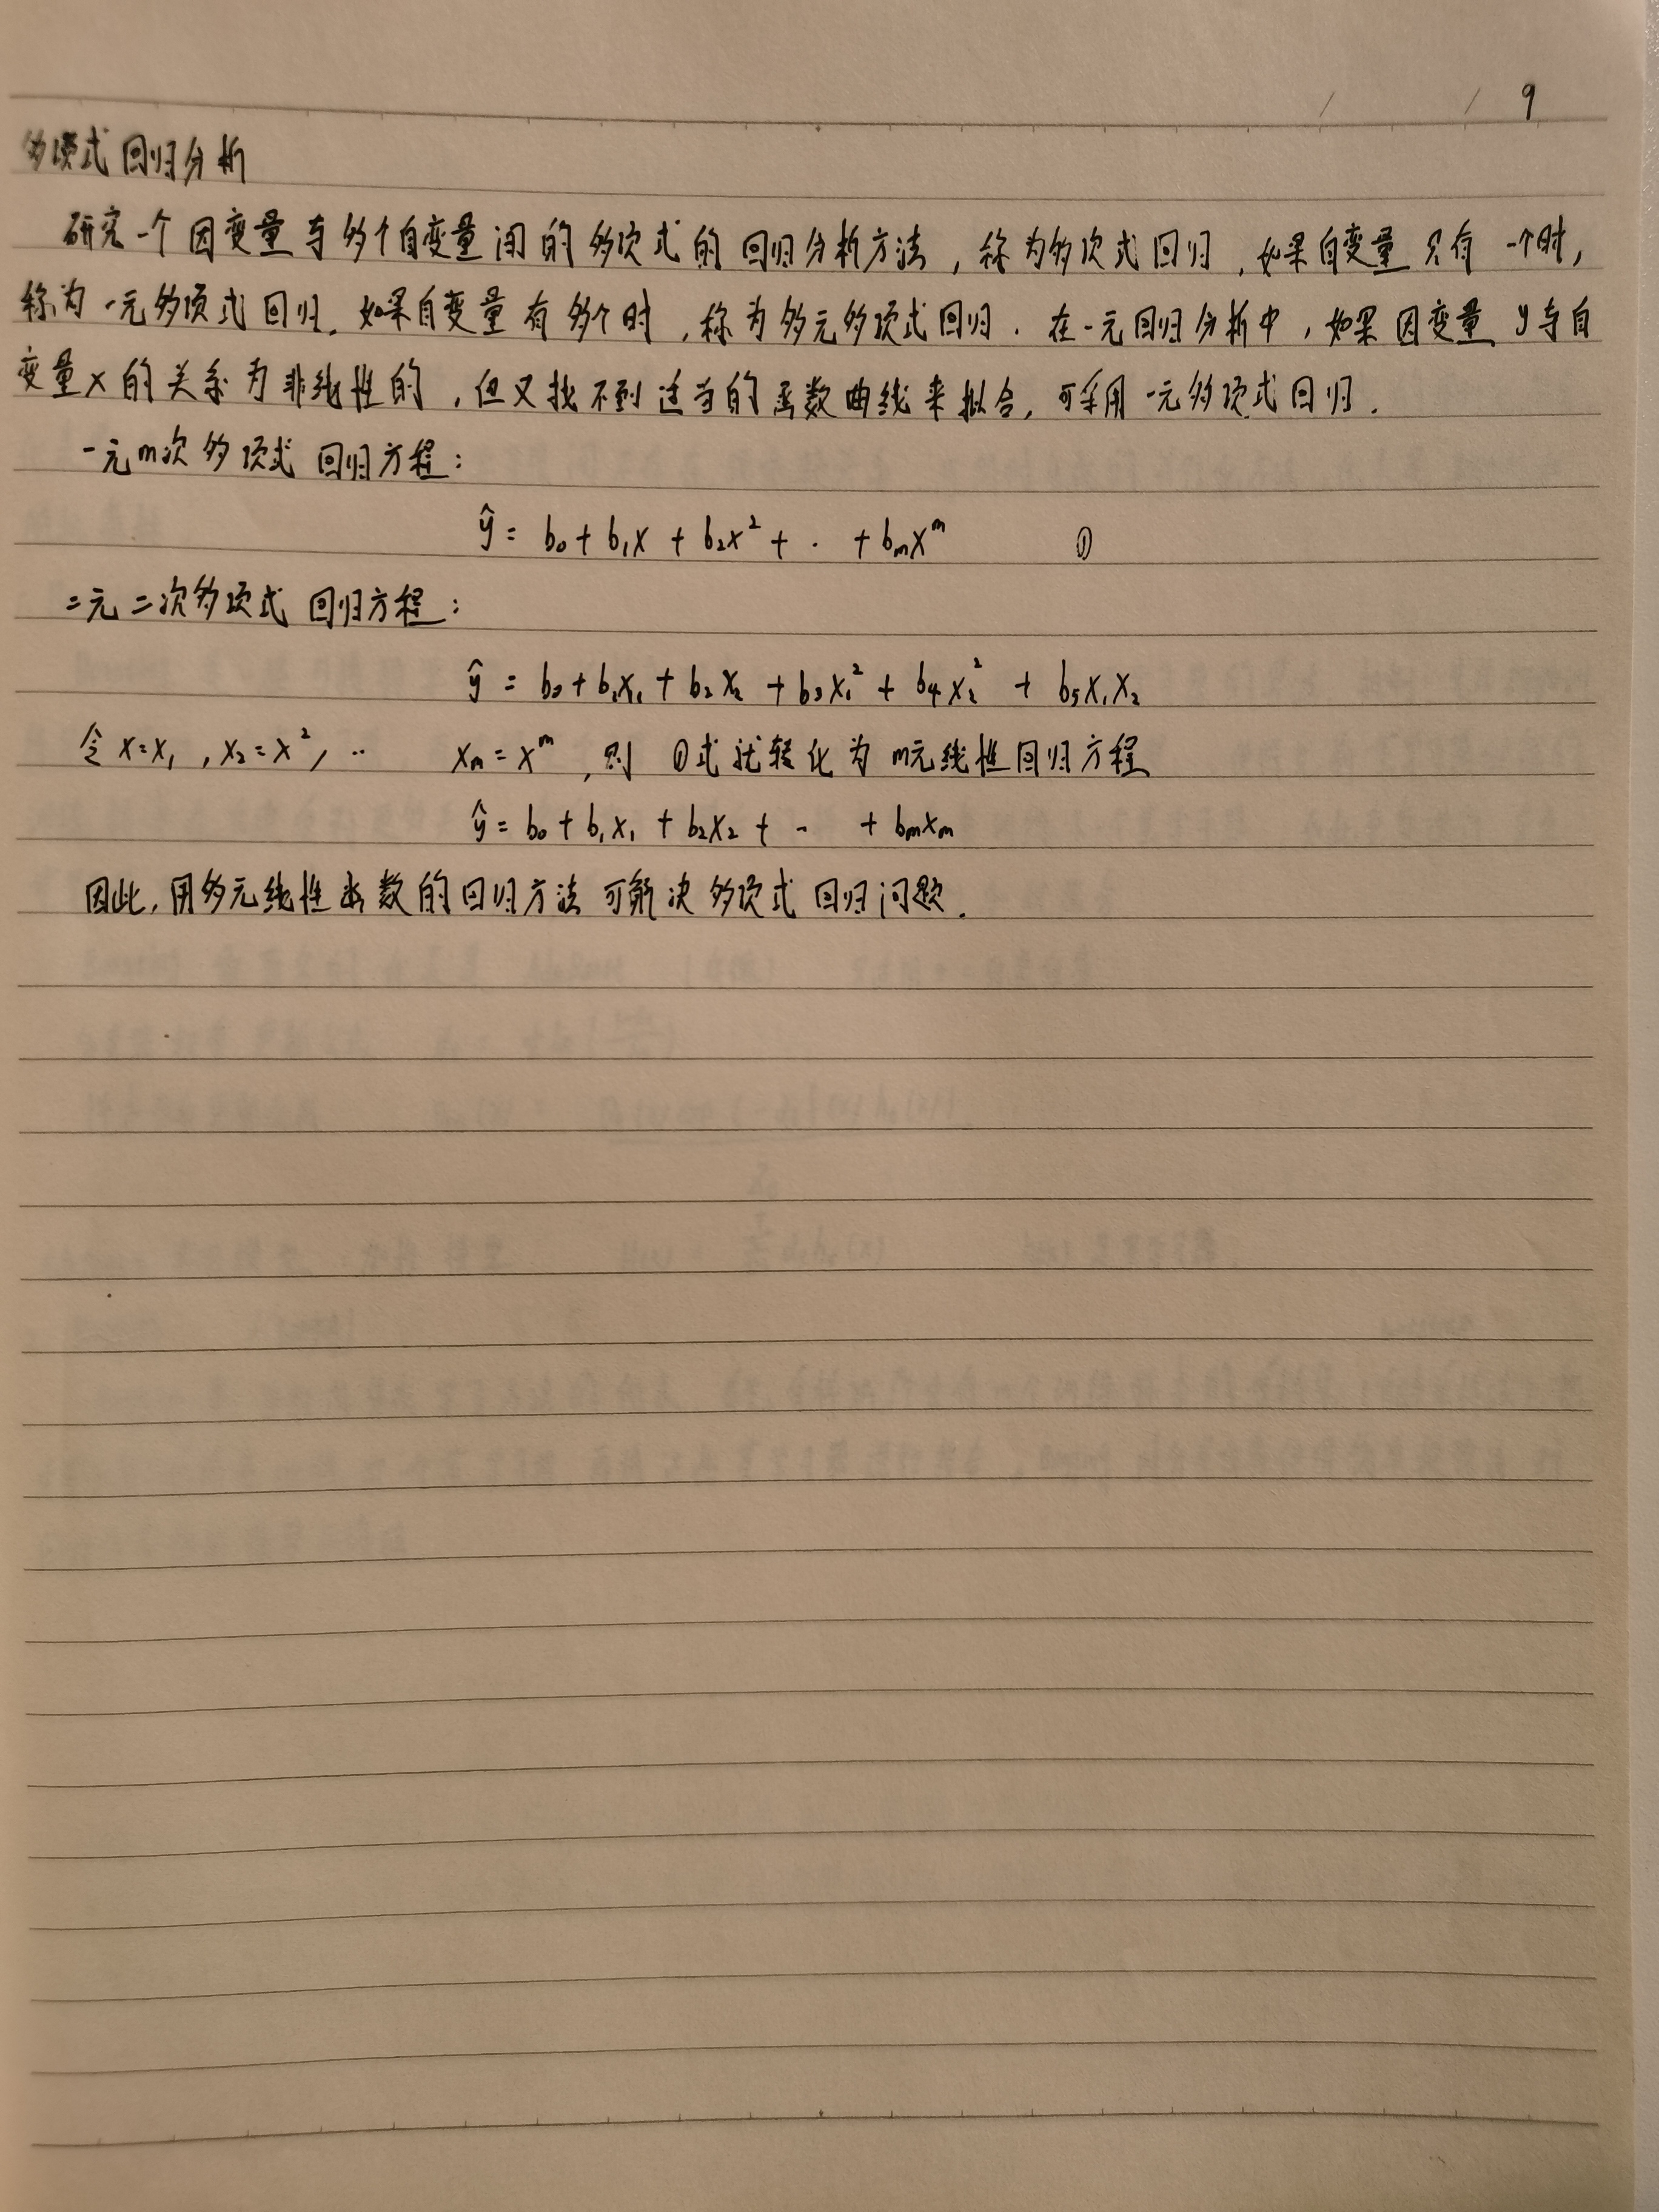 / / 9
多项式回归分析
研究一个因变量与多个自变量间的多项式的回归分析方法，称为多项式回归，如果自变量只有一个时，
称为一元多项式回归，如果自变量有多个时，称为多元多项式回归．在一元回归分析中，如果因变量y与自
变量x的关系为非线性的，但又找不到适当的函数曲线来拟合，可采用一元多项式回归．
一元m次多项式回归方程：
ŷ = b₀ + b₁x + b₂x² + ·· + bₘxᵐ ①
二元二次多项式回归方程：
ŷ = b₀ + b₁x₁ + b₂x₂ + b₃x₁² + b₄x₂² + b₅x₁x₂
令x=x₁，x₂=x²，·· xₘ=xᵐ，则①式就转化为m元线性回归方程
ŷ = b₀ + b₁x₁ + b₂x₂ + ·· + bₘxₘ
因此，用多元线性函数的回归方法可解决多项式回归问题．